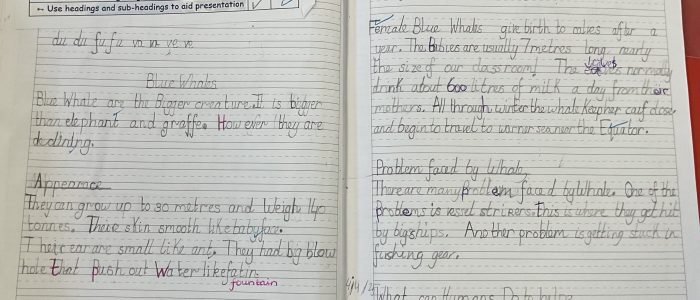 Use headings and sub-headings to aid presentation
du du fu fu vn vn ve ve
Blue Whales
Blue Whale are the Bigger creature. It is bigger
than elephant and graffe. However they are
declining.
Appearance
They can grow up to 30 metres and Weigh 140
tonnes. There skin smooth like baby face.
Their ear are small like ant. They had big blow
hole that push out Water like
fountain
Female Blue Whales give birth to calves after a
year. The Babies are usually 7 metres long nearly
the size of our classroom! The calves normally
drink about 600 litres of milk a day from their
mothers. All through winter the whale Keep her calf close
and begin to travel to warmer sea near the Equator.
Problem faced by Whale
There are many problem faced by Whale. One of the
problems is vessel strikers. This is where they get hit
by big ships. Another problem is getting stuck in
fishing gear.
What can Humans Do to help